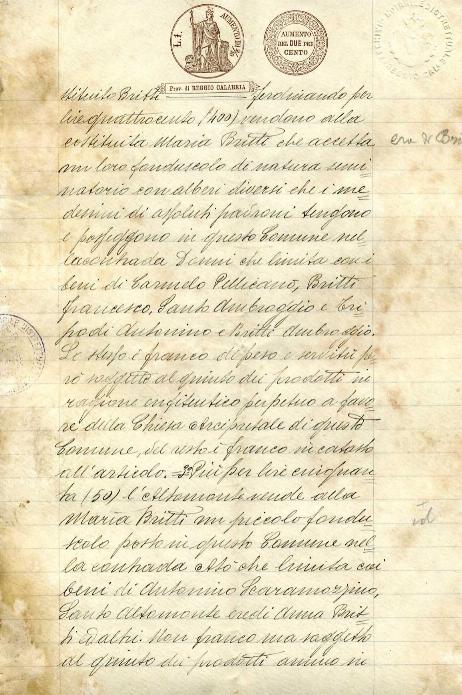 L.1.
AUMENTO DI 2/10
AUMENTO
DEL DUE PER
CENTO
Prov. di REGGIO CALABRIA
stituito Britti Ferdinando per
lire quattrocento (400) vendono alla
costituita Maria Britti che accetta
un loro fonduscolo di natura semi
natorio con alberi diversi che i me
desimi di assoluti padroni tengono
e posseggono in questo Comune nel
la contrada Denni che limita con i
beni di Carmelo Pellicano, Britti
Francesco, Santo Ambroggio e Tri
podi Antonino e Britti Ambroggio.
Lo stesso è franco di peso e servitù pe
rò soggetto al quinto dei prodotti in
ragione enfiteutico perpetuo a favo
re della Chiesa Arcipretale di questo
Comune, del resto è franco in catasto
all'articolo. 3º Più per lire cinquan
ta (50) l'Altomonte vende alla
Maria Britti un piccolo fondu
scolo posto in questo Comune nel
la contrada Atò che limita coi
beni di Antonino Scaramozzino,
Santo Altomonte eredi Anna Brit
ti ed altri. Non franco ma soggetto
al quinto dei prodotti annuo in